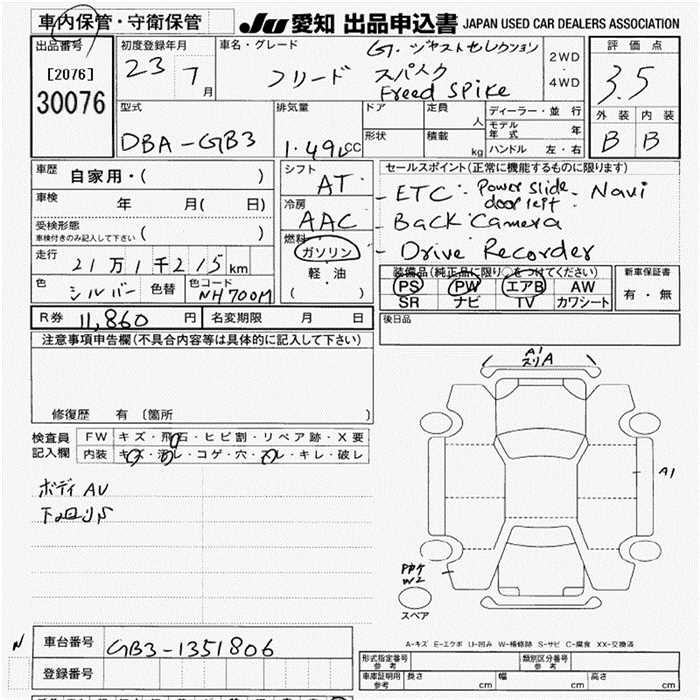 車内保管・守衛保管
JU 愛知 出品申込書 JAPAN USED CAR DEALERS ASSOCIATION
出品番号
[2076]
30076
初度登録年月
23 7 月
車名・グレード
フリード スパイク
G. ジャストセレクション
Freed SpiKe
2WD
4WD
評価点
3.5
外装 内装
B B
型式
DBA-GB3
排気量
1.49L CC
ドア
形状
定員 人
積載 kg
ディーラー・並行
モデル年式 年
ハンドル 左・右
車歴 自家用・( )
車検 年 月( 日)
受検形態
車検付きのみ記入して下さい ( )
走行
21万1千215km
色 シルバー 色替 色コード NH700M
シフト
AT
冷房
AAC
燃料
ガソリン
軽・油
( )
セールスポイント(正常に機能するものに限ります)
- ETC - Power slide door left - Navi
- BacK Camera
- Drive Recorder
装備品(純正品に限り○をつけてください)
PS PW エアB AW
SR ナビ TV カワシート
新車保証書
有・無
R券 11,860 円 名変期限 月 日
後日品
注意事項申告欄(不具合内容等は具体的に記入して下さい)
修復歴 有 〔箇所 〕
検査員記入欄
FW キズ・飛石・ヒビ割・リペア跡・X要
内装 キズ・汚レ・コゲ・穴・スレ・キレ・破レ
ボディ AU
A1
スリA
A1
W2
スペア
A-キズ E-エクボ U-凹み W-補修跡 S-サビ C-腐食 XX-交換済
N
車台番号 GB3-1351806
登録番号
形式指定番号 参考
類別区分番号 参考
車庫証明用 参考 長さ cm 幅 cm 高さ cm